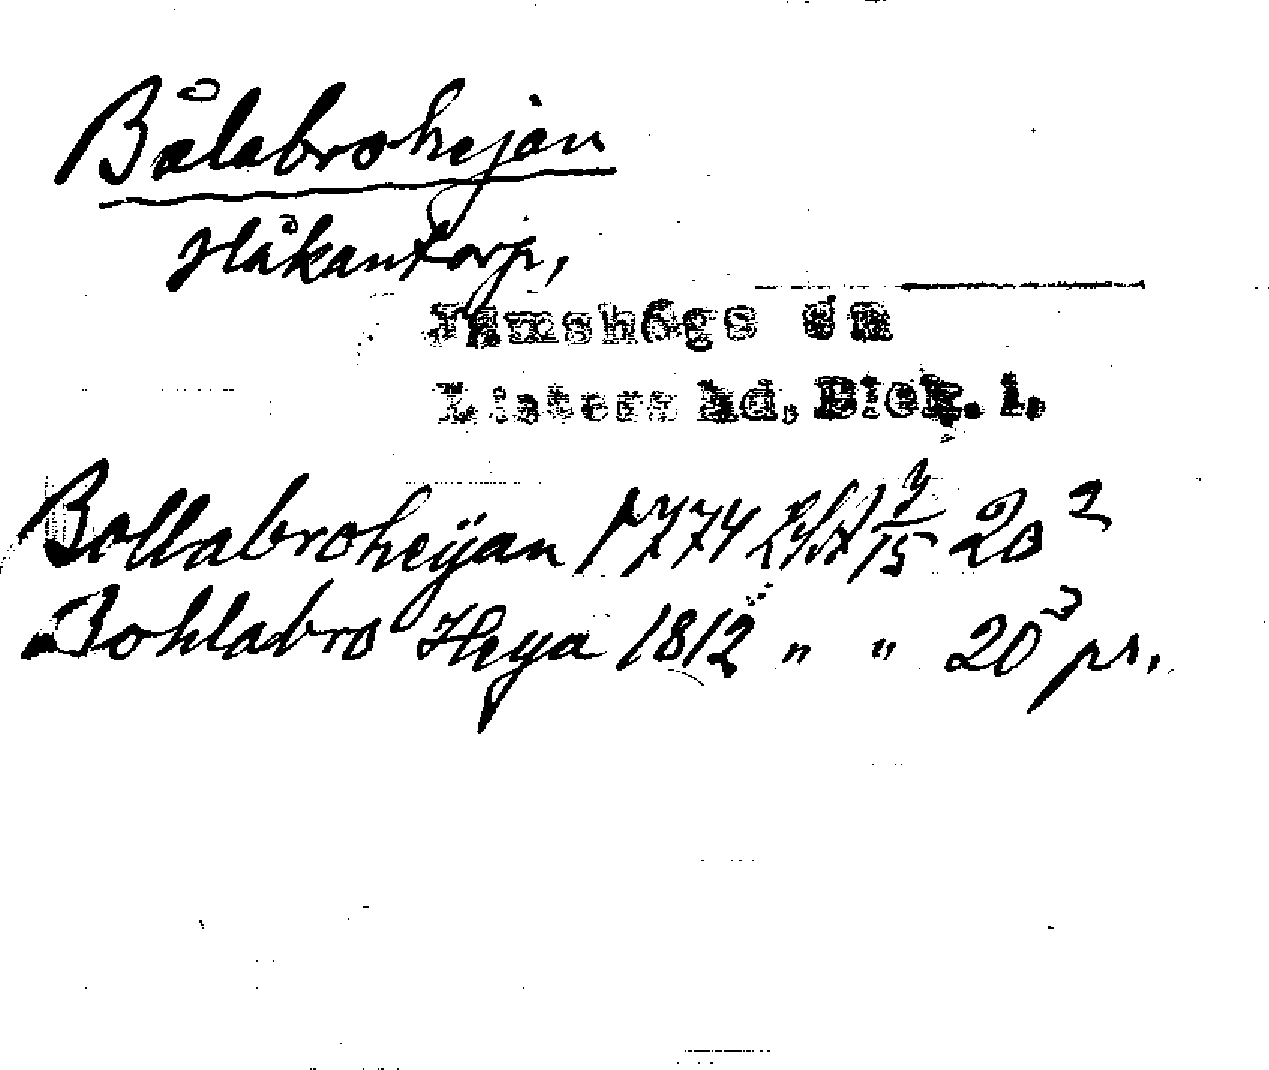 Bålabrohejan
Håkantorp,
Jämshögs sn
Listers hd, Blek. l.
Bollabroheÿan 1774 20 2
Bohlabro Heya 1812 " " 20 3 pr.